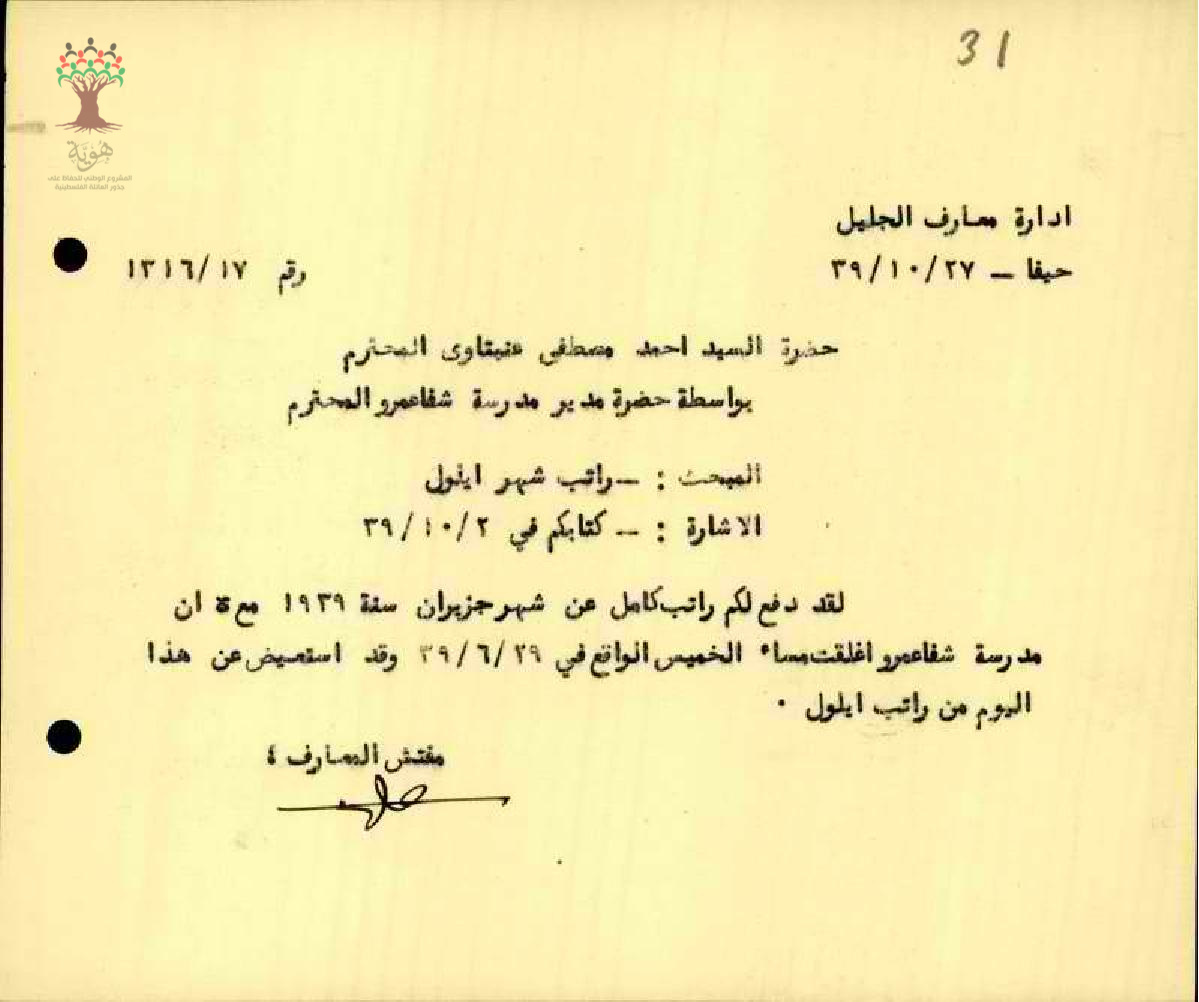 31
هُوِيَّة
المشروع الوطني للحفاظ على
جذور العائلة الفلسطينية
ادارة معارف الجليل
حيفا – ٣٩/١٠/٢٧
رقم ١٣١٦/١٧
حضرة السيد احمد مصطفى عنبتاوى المحترم
بواسطة حضرة مدير مدرسة شفاعمرو المحترم
المبحث : – راتب شهر ايلول
الاشارة : – كتابكم في ٣٩/١٠/٢
لقد دفع لكم راتب كامل عن شهر جزيران سنة ١٩٣٩ مع ان
مدرسة شفاعمرو اغلقت مساء الخميس الواقع في ٣٩/٦/٢٩ وقد استعيض عن هذا
اليوم من راتب ايلول .
مفتش المعارف ٤